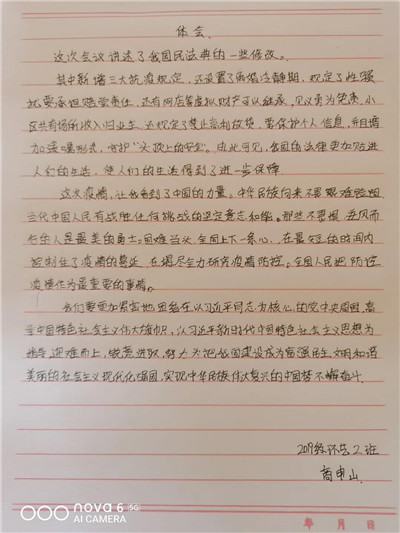 体会
这次会议讲述了我国民法典的一些修改。
其中新增三大抗疫规定，还设置了离婚冷静期，规定了性骚
扰要承担赔偿责任，还有网店等虚拟财产可以继承，见义勇为免责，小
区共有场所收入归业主，还规定了禁止高利放贷，要保护个人信息，并且增
加遗嘱形式，守护“头顶上的安全”。由此可见，我国的法律更加贴进
人们的生活，使人们的生活得到了进一步保障
这次疫情，让我看到了中国的力量。中华民族向来不畏艰难险阻
当代中国人民有战胜任何挑战的坚定意志和能。那些不畏艰 逆风而
行的人是最美的勇士。困难当头，全国上下一条心，在最短的时间内
控制住了疫情的蔓延，在竭尽全力研究疫情防控。全国人民把防控
疫情作为最重要的事情。
我们要更加紧密地团结在以习近平同志为核心的党中央周围，高
举中国特色社会主义伟大旗帜，以习近平新时代中国特色社会主义思想为
指导，迎难而上，锐意进取，努力为把我国建设成为富强民主文明和谐
美丽的社会主义现代化强国，实现中华民族伟大复兴的中国梦不懈奋斗.
2019级环艺2班
商申山
nova 6 5G
AI CAMERA
年 月 日